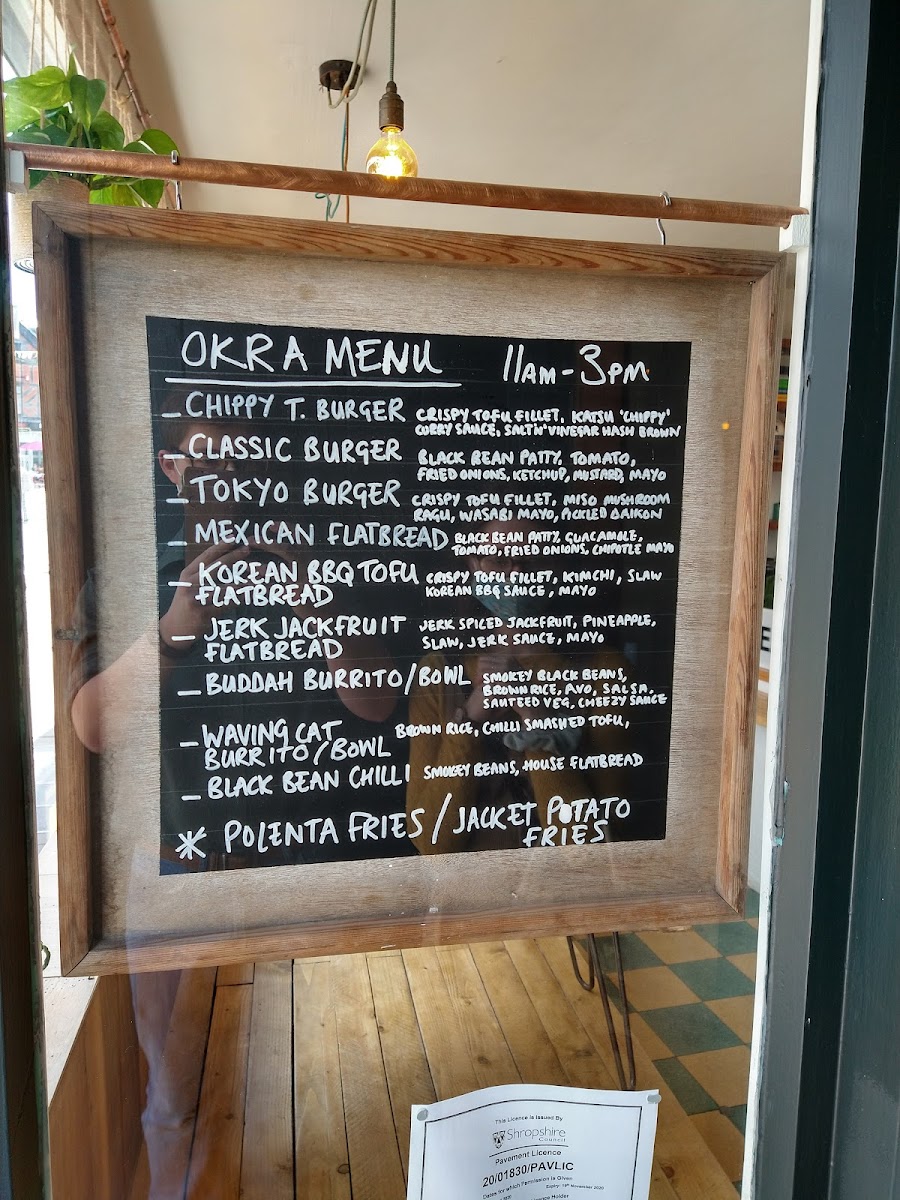 OKRA MENU 11AM-3PM
- CHIPPY T. BURGER CRISPY TOFU FILLET, KATSU 'CHIPPY'
CURRY SAUCE, SALT N' VINEGAR HASH BROWN
- CLASSIC BURGER BLACK BEAN PATTY, TOMATO,
FRIED ONIONS, KETCHUP, MUSTARD, MAYO
- TOKYO BURGER CRISPY TOFU FILLET, MISO MUSHROOM
RAGU, WASABI MAYO, PICKLED DAIKON
- MEXICAN FLATBREAD BLACK BEAN PATTY, GUACAMOLE,
TOMATO, FRIED ONIONS, CHIPOTLE MAYO
- KOREAN BBQ TOFU CRISPY TOFU FILLET, KIMCHI, SLAW
FLATBREAD KOREAN BBQ SAUCE, MAYO
- JERK JACKFRUIT JERK SPICED JACKFRUIT, PINEAPPLE,
FLATBREAD SLAW, JERK SAUCE, MAYO
- BUDDAH BURRITO/BOWL SMOKEY BLACK BEANS,
BROWN RICE, AVO, SALSA,
SAUTEED VEG, CHEEZY SAUCE
- WAVING CAT BROWN RICE, CHILLI SMASHED TOFU,
BURRITO/BOWL
- BLACK BEAN CHILLI SMOKEY BEANS, HOUSE FLATBREAD
* POLENTA FRIES/JACKET POTATO
FRIES
This Licence is Issued By
Shropshire
Council
Pavement Licence
20/01830/PAVLIC
Dates for which Permission is Given
Expiry: 18th November 2020
Licence Holder